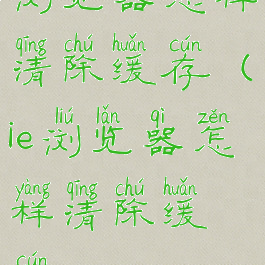 浏览器怎样
qīng chú huǎn cún
清除缓存（
liú lǎn qì zěn
ie浏览器怎
yàng qīng chú huǎn
样清除缓
cún